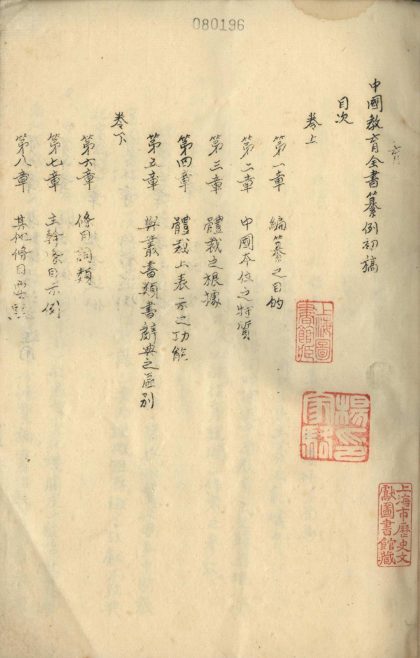 080196
中國教育全書纂例初稿
目次
卷上
第一章 編纂之目的
第二章 中國本位之特質
第三章 體裁之根據
第四章 體裁上表示之功能
第五章 與叢書類書辭典之區別
卷下
第六章 條目詞類
第七章 主幹條目示例
第八章 其他條目
上海圖書館藏
楊家駱印
上海市歷史文獻圖書館藏